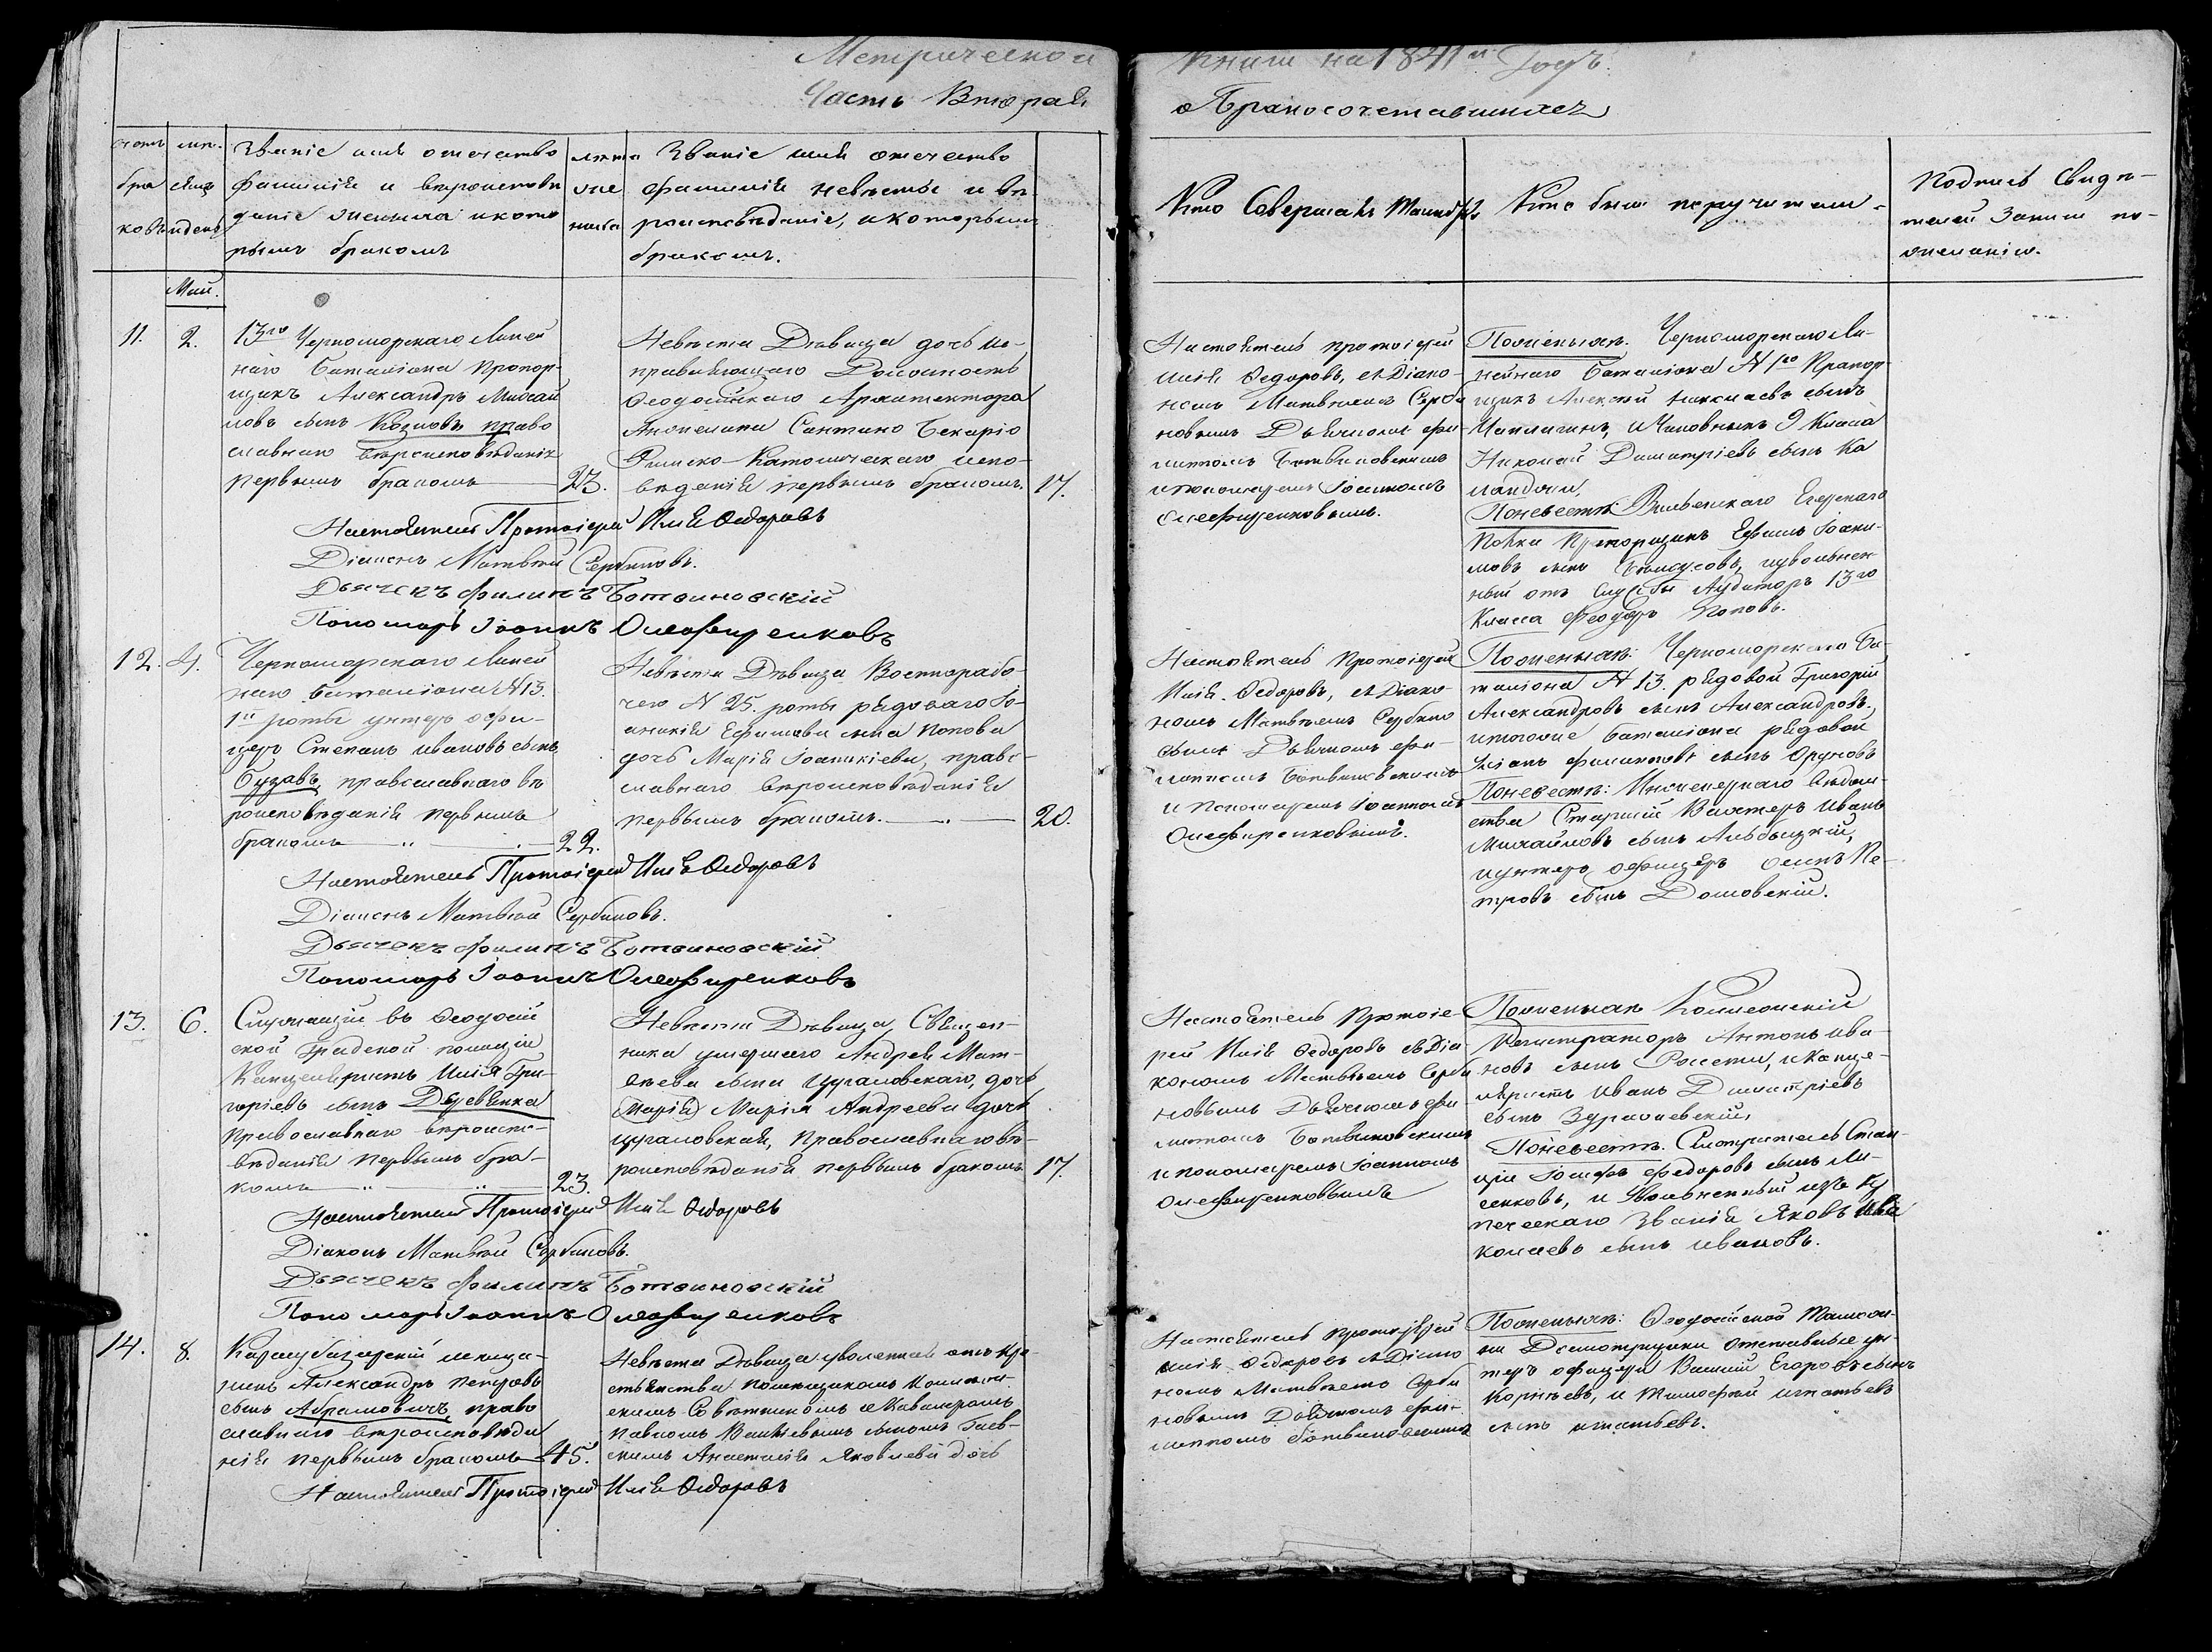 Метрической
Часть Вторая
Книги на 1841й Годъ.
о Бракосочетавшихся
счетъ
бра
ковъ
мѣ-
сяцъ
и день
Званіе имя отечество
фамилія и вѣроисповѣ
даніе жениха и кото
рымъ бракомъ
лѣта
же
ниха
Званіе имя отечество
фамилія невѣсты и вѣ-
роисповѣданіе, и которымъ
бракомъ.
Кто Совершалъ Таинство
Кто были поручители
Подпись Свидѣ-
телей Записи по
желанію.
Маи.
11. 2.
13го Черноморскаго Линей
наго Баталіона Прапор-
щикъ Александръ Михай
ловъ сынъ Козловъ право
славнаго вѣроисповѣданія
первымъ бракомъ 23.
Невѣста Дѣвица дочь ис-
правляющаго Должность
Ѳеодосійскаго Архитектора
Сантино Бекаріо
Римско-Католическаго испо-
вѣданія первымъ бракомъ. 17.
Настоятель Протоіерей
Илія Ѳедоровъ, съ Діако-
номъ Матвѣемъ Серби
новымъ Дьячкомъ Фи-
липпомъ Ботвиновскимъ
и пономаремъ Іоанномъ
Олефиренковымъ.
По женихѣ. Черноморскаго Ли-
нейнаго Баталіона № 1го Прапор-
щикъ Алексѣй Николаевъ сынъ
Чаплыгинъ, и Чиновникъ 9 Класса
Николай Димитріевъ сынъ Ка
По невѣстѣ Виленскаго Егерскаго
Полка Прапорщикъ Ефимъ Іоаки-
мовъ сынъ увольнен
ный отъ Службы Аудиторъ 13го
Класса Феодоръ Поповъ.
Настоятель Протоіерей Илія Ѳедоровъ
Діаконъ Матвѣй Сербиновъ.
Дьячекъ Филипъ Ботвиновскій
Пономарь Іоаннъ Олефиренковъ
12. 4.
Черноморскаго Линей
наго Баталіона №13.
1й роты унтеръ офи-
церъ Степанъ Ивановъ сынъ
Бузавъ, православнаго вѣ
роисповѣданія первымъ
бракомъ 22.
Невѣста Дѣвица Военнорабо-
чей № 25. роты рядоваго Іо-
аникія Ефимова сына Попова
дочь Марія Іоаникіева, право-
славнаго вѣроисповѣданія
первымъ бракомъ. 20.
Настоятель Протоіерей
Илія Ѳедоровъ, съ Діако-
номъ Матвѣемъ Сербино
вымъ Дьячкомъ Фи-
липпомъ Ботвиновскимъ
и Пономаремъ Іоанномъ
Олефиренковымъ.
По женихѣ: Черноморскаго Ба-
таліона № 13. рядовой Григорій
Александровъ сынъ Александровъ,
и тогоже баталіона рядовой
Филиповъ сынъ
По невѣстѣ: Инженернаго вѣдом-
ства Старшій Вахтеръ Иванъ
Михайловъ сынъ
и унтеръ офицеръ Осипъ Пе-
тровъ сынъ Домовскій.
Настоятель Протоіерей Илія Ѳедоровъ
Діаконъ Матвѣй Сербиновъ.
Дьячекъ Филипъ Ботвиновскій
Пономарь Іоаннъ Олефиренковъ
13. 6.
Служащій въ Ѳеодосій
ской Градской полиціи
Канцеляристъ Илія Гри-
горіевъ сынъ Деревянка
Православнаго вѣроиспо-
вѣданія первымъ бра-
комъ 23.
Невѣста Дѣвица, Священ-
ника умершаго Андрея Мат-
вѣева сына Цугаловскаго, дочь
(Марія) Марія Андреева дочь
Цугаловская, Православнаго вѣ-
роисповѣданія первымъ бракомъ 17.
Настоятель Протоіе-
рей Илія Ѳедоровъ съ Діа-
кономъ Матвѣемъ Серби
новымъ Дьячкомъ Фи-
липомъ Ботвиновскимъ
и пономаремъ Іоанномъ
Олефиренковымъ
По женихѣ Коллежскій
Регистраторъ Антонъ Ива-
новъ сынъ Россети, и Канце-
ляристъ Иванъ Димитріевъ
сынъ
По невѣстѣ. Смотритель Стан-
ціи Іосифъ Федоровъ сынъ Ли-
сенковъ, и Увольненный изъ Ку
печескаго Званія Яковъ Ни
колаевъ сынъ Ивановъ.
Настоятель Протоіерей Илія Ѳедоровъ
Діаконъ Матвѣй Сербиновъ.
Дьячекъ Филипъ Ботвиновскій
Пономарь Іоаннъ Олефиренковъ
14. 8.
Карасубазарскій мѣща-
нинъ Александръ Петровъ
сынъ Абрамовичъ, право
славнаго вѣроисповѣда
нія первымъ бракомъ 45.
Невѣста Дѣвица уволенная отъ кре
стьянства помѣщикомъ Коллеж-
скимъ Совѣтникомъ и Кавалеромъ
Павломъ Васильевымъ сыномъ Гаев-
скимъ Анастасія Яковлева дочь
Настоятель протоіерей
Илія Ѳедоровъ съ Діако
номъ Матвѣемъ Серби
новымъ Дьячкомъ Фи-
липпомъ Ботвиновскимъ
По женихѣ: Ѳеодосійской Таможни
Досмотрщики отставные ун-
теръ офицеры Василій Егоровъ сынъ
Корнѣевъ, и Тимофей Игнатьевъ
сынъ Игнатьевъ.
Настоятель Протоіерей Илія Ѳедоровъ